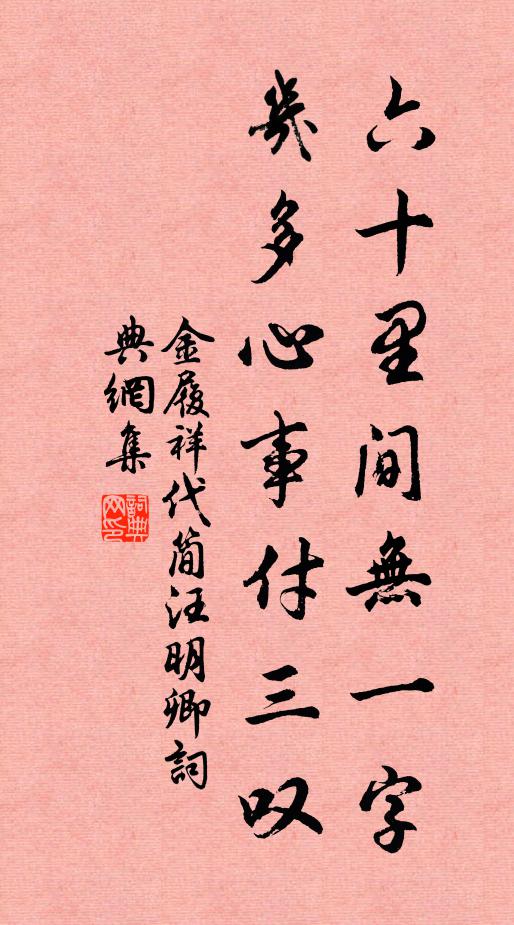 六十里间無一字
幾多心事付三叹
金履祥代简汪明卿詞
典網集
詞典网印